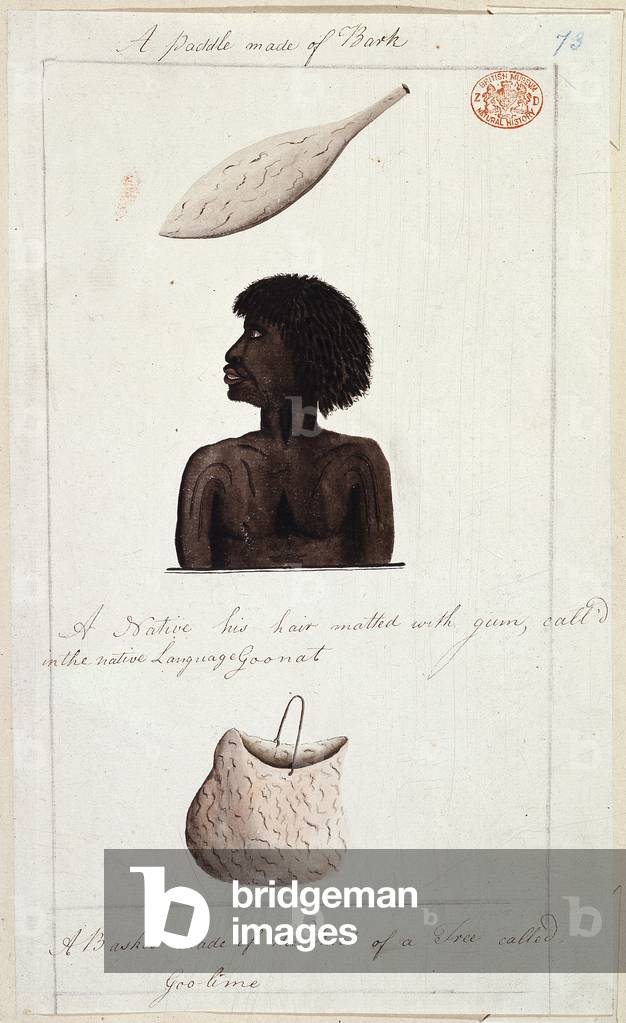 A paddle made of Bark
73
BRITISH MUSEUM
Z D
NATURAL HISTORY
A Native his hair matted with gum, call'd
in the native Language Goonat
A Basket made of the of a Tree called
Goo-lime
b bridgeman
images